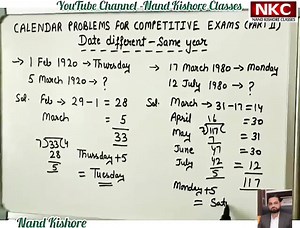 YouTube Channel - Nand Kishore Classes
NKC
NAND KISHORE CLASSES
CALENDAR PROBLEMS FOR COMPETITIVE EXAMS (PART II)
Date different - Same year
→ 1 Feb 1920 → Thursday
5 March 1920 → ?
Sol. Feb → 29 - 1 = 28
March = 5
33
7)33(4
28
5
Thursday + 5
= Tuesday
→ 17 March 1980 → Monday
12 July 1980 → ?
Sol. March → 31 - 17 = 14
April = 30
May = 31
June = 30
July = 12
117
16
7)117(
7
47
42
5
Monday + 5
= Sat
Nand Kishore